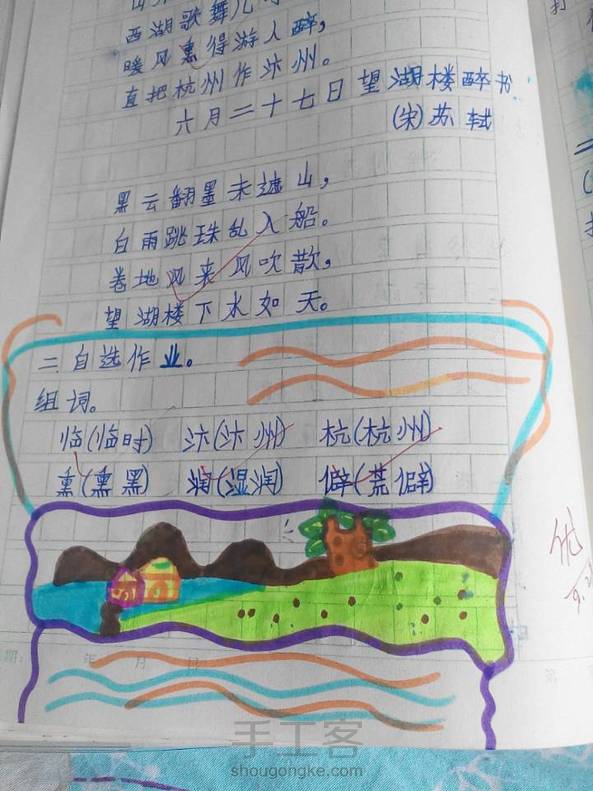 西湖歌舞几
暖风熏得游人醉,
直把杭州作汴州。
六月二十七日望湖楼醉书
(宋)苏轼
黑云翻墨未遮山,
白雨跳珠乱入船。
卷地风来风吹散,
望湖楼下水如天。
二自选作业。
组词。
临(临时) 汴(汴州) 杭(杭州)
熏(熏黑) 润(湿润) 僻(荒僻)
优
年 月 日
手工客
shougongke.com